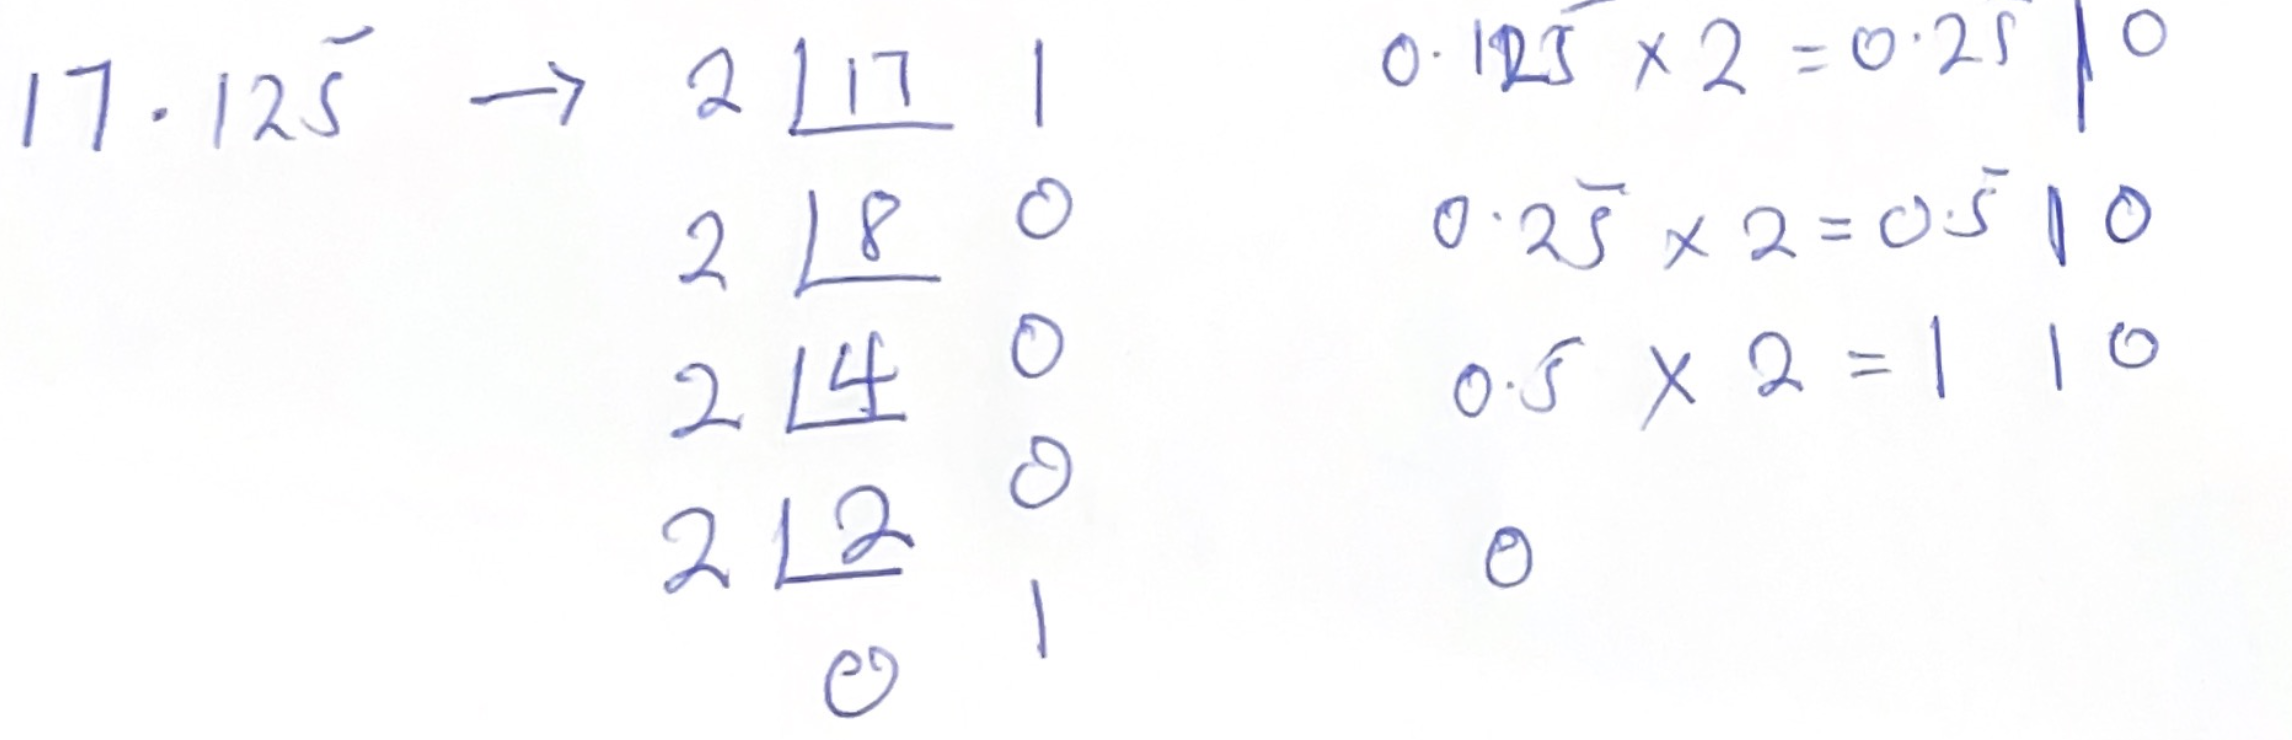 17.125 → 2 | 17 1
2 | 8 0
2 | 4 0
2 | 2 0
0 1
0.125 × 2 = 0.25 | 0
0.25 × 2 = 0.5 | 0
0.5 × 2 = 1 | 0
0